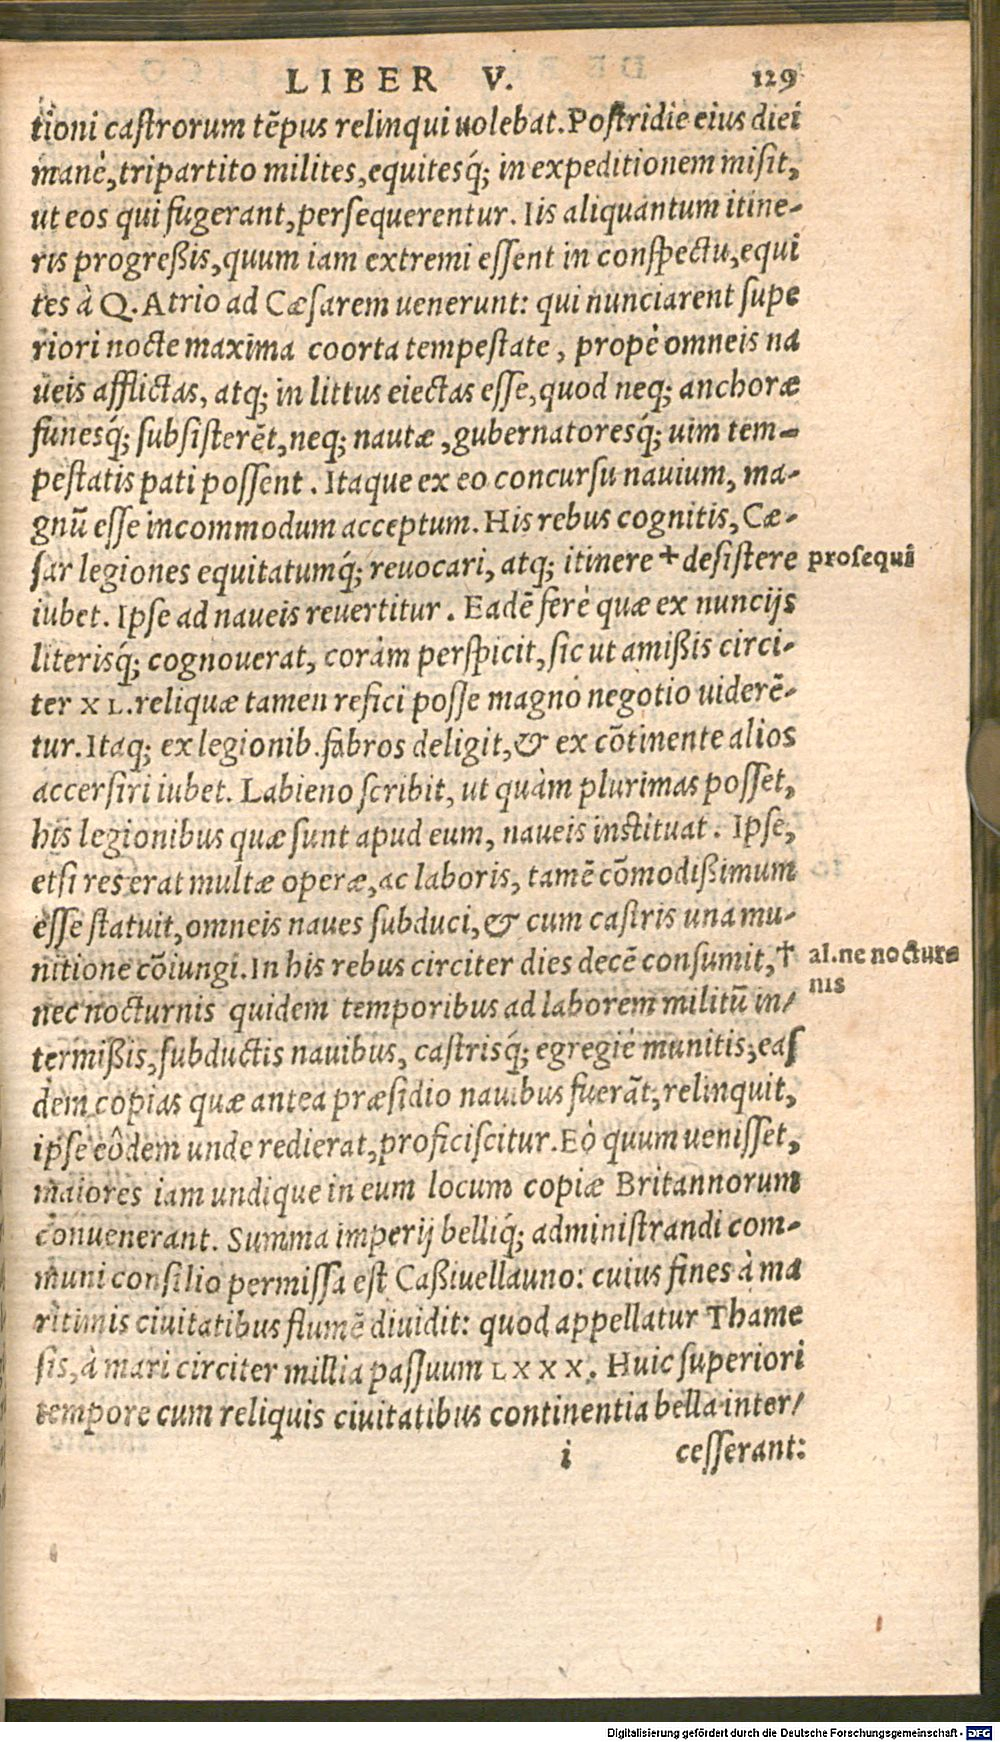 LIBER V. 129
tioni caſtrorum tẽpus relinqui uolebat. Poſtridie eius diei
manè, tripartito milites, equitesq́; in expeditionem miſit,
ut eos qui fugerant, perſequerentur. Iis aliquantum itine-
ris progreßis, quum iam extremi eſſent in conſpectu, equi
tes à Q. Atrio ad Cæſarem uenerunt: qui nunciarent ſupe
riori nocte maxima coorta tempeſtate, propè omneis na
ueis afflictas, atq; in littus eiectas eſſe, quod neq; anchoræ
funesq́; ſubſiſterẽt, neq; nautæ, gubernatoresq́; uim tem-
peſtatis pati poſſent. Itaque ex eo concurſu nauium, ma-
gnũ eſſe incommodum acceptum. His rebus cognitis, Cæ-
ſar legiones equitatumq́; reuocari, atq; itinere + deſiſtere prosequi
iubet. Ipſe ad naueis reuertitur. Eadẽ ferè quæ ex nuncijs
literisq́; cognouerat, coràm perſpicit, ſic ut amißis circi-
ter XL. reliquæ tamen refici poſſe magno negotio uiderẽ-
tur. Itaq; ex legionib. fabros deligit, & ex cõtinente alios
accerſiri iubet. Labieno ſcribit, ut quàm plurimas poſſet,
his legionibus quæ ſunt apud eum, naueis inſtituat. Ipſe,
etſi res erat multæ operæ, ac laboris, tamẽ cõmodißimum
eſſe ſtatuit, omneis naues ſubduci, & cum caſtris una mu-
nitione cõiungi. In his rebus circiter dies decẽ conſumit, † al. ne noctur-
nec nocturnis quidem temporibus ad laborem militũ in- nis
termißis, ſubductis nauibus, caſtrisq́; egregiè munitis; eaſ
dem copias quæ antea præſidio nauibus fuerãt; relinquit,
ipſe eôdem unde redierat, proficiſcitur. Eò quum ueniſſet,
maiores iam undique in eum locum copiæ Britannorum
conuenerant. Summa imperij belliq́; adminiſtrandi com-
muni conſilio permiſſa eſt Caßiuellauno: cuius fines à ma
ritimis ciuitatibus flumẽ diuidit: quod appellatur Thame
ſis, à mari circiter millia paſſuum LXXX. Huic ſuperiori
tempore cum reliquis ciuitatibus continentia bella inter-
i ceſſerant:
Digitalisierung gefördert durch die Deutsche Forschungsgemeinschaft - DFG